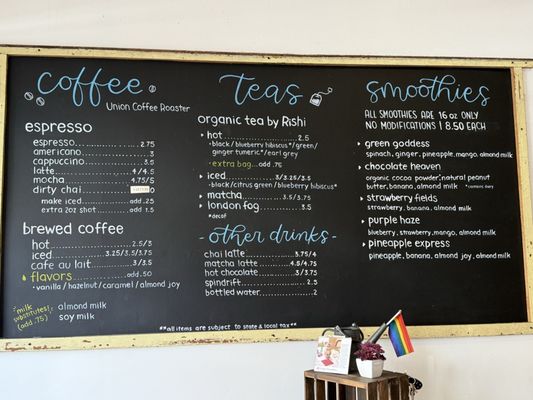 coffee
Union Coffee Roaster
espresso
espresso 2.75
americano 3
cappuccino 3.5
latte 4/4.5
mocha 4.75/5
dirty chai
make iced add .25
extra 2oz shot add 1.5
brewed coffee
hot 2.5/3
iced 3.25/3.5/3.75
cafe au lait 3/3.5
flavors add .50
• vanilla / hazelnut / caramel / almond joy
milk substitutes! (add .75)
almond milk
soy milk
teas
organic tea by Rishi
hot 2.5
• black / blueberry hibiscus* / green /
ginger tumeric* / earl grey
• extra bag add .75
iced 3/3.25/3.5
• black / citrus green / blueberry hibiscus*
matcha 3.5/3.75
london fog 3.5
*decaf
- Other drinks -
chai latte 3.75/4
matcha latte 4.5/4.75
hot chocolate 3/3.75
spindrift 2.5
bottled water 2
smoothies
ALL SMOOTHIES ARE 16 OZ ONLY
NO MODIFICATIONS | 8.50 EACH
green goddess
spinach, ginger, pineapple, mango, almond milk
chocolate heaven
organic cocoa powder, natural peanut
butter, banana, almond milk *contains dairy
strawberry fields
strawberry, banana, almond milk
purple haze
blueberry, strawberry, mango, almond milk
pineapple express
pineapple, banana, almond joy, almond milk
**all items are subject to state & local tax**